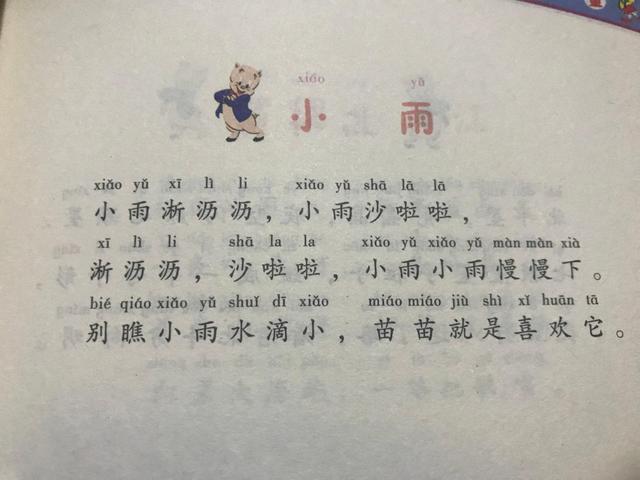 xiǎo yǔ
小雨
xiǎo yǔ xī lì lì xiǎo yǔ shā lā lā
小雨淅沥沥，小雨沙啦啦，
xī lì li shā la la xiǎo yǔ xiǎo yǔ màn màn xià
淅沥沥，沙啦啦，小雨小雨慢慢下。
bié qiáo xiǎo yǔ shuǐ dī xiǎo miáo miáo jiù shì xǐ huān tā
别瞧小雨水滴小，苗苗就是喜欢它。